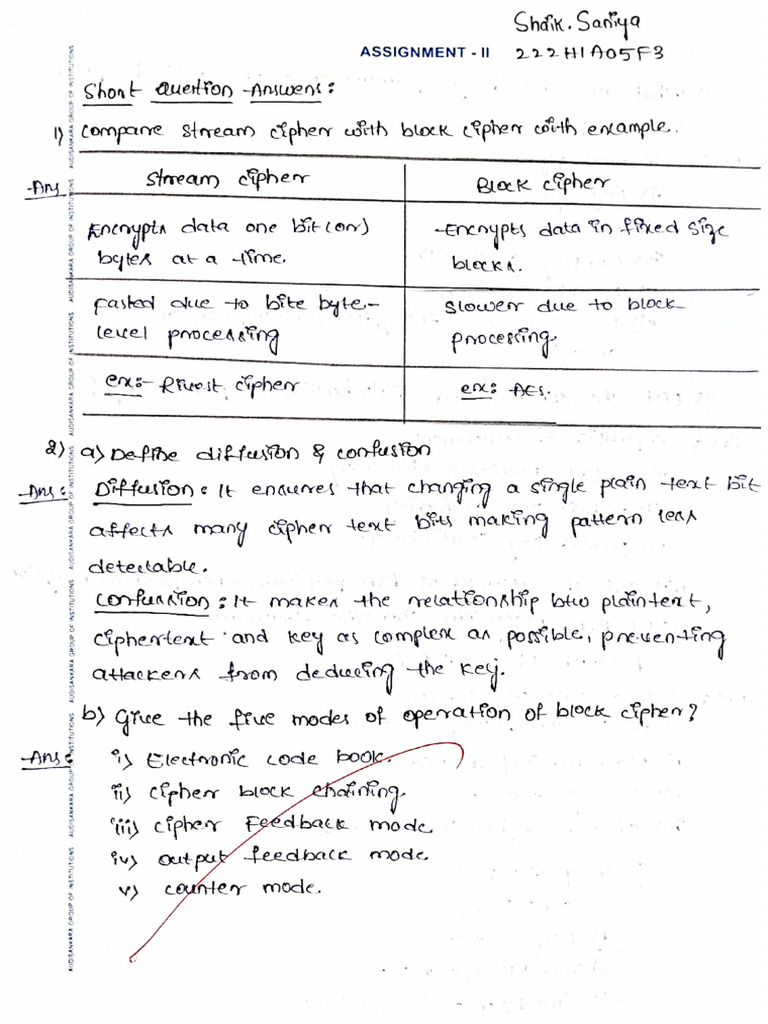 Shaik. Saniya
ASSIGNMENT - II 222H1A05F3
Short Question -Answers:
1) Compare stream cipher with block cipher with example.
Ans
Stream cipher
Block cipher
Encrypts data one bit (or) bytes at a time.
-Encrypts data in fixed size blocks.
fasted due to bite byte-level processing
slower due to block processing.
ex:- Rivest cipher
ex: AES.
2) a) Define diffusion & confusion
-Ans: Diffusion: It ensures that changing a single plain text bit
affects many cipher text bits making pattern less
detectable.
Confussion: It makes the relationship btw plaintext,
ciphertext and key as complex as possible, preventing
attackers from deducing the key.
b) Give the five modes of operation of block cipher?
-Ans: i) Electronic code book.
ii) cipher block chaining.
iii) cipher Feedback mode
iv) output feedback mode
v) counter mode.
AUDISANKARA GROUP OF INSTITUTIONS AUDISANKARA GROUP OF INSTITUTIONS AUDISANKARA GROUP OF INSTITUTIONS AUDISANKARA GROUP OF INSTITUTIONS AUDISANKARA GROUP OF INSTITUTIONS AUDISANKARA GROUP OF INSTITUTIONS